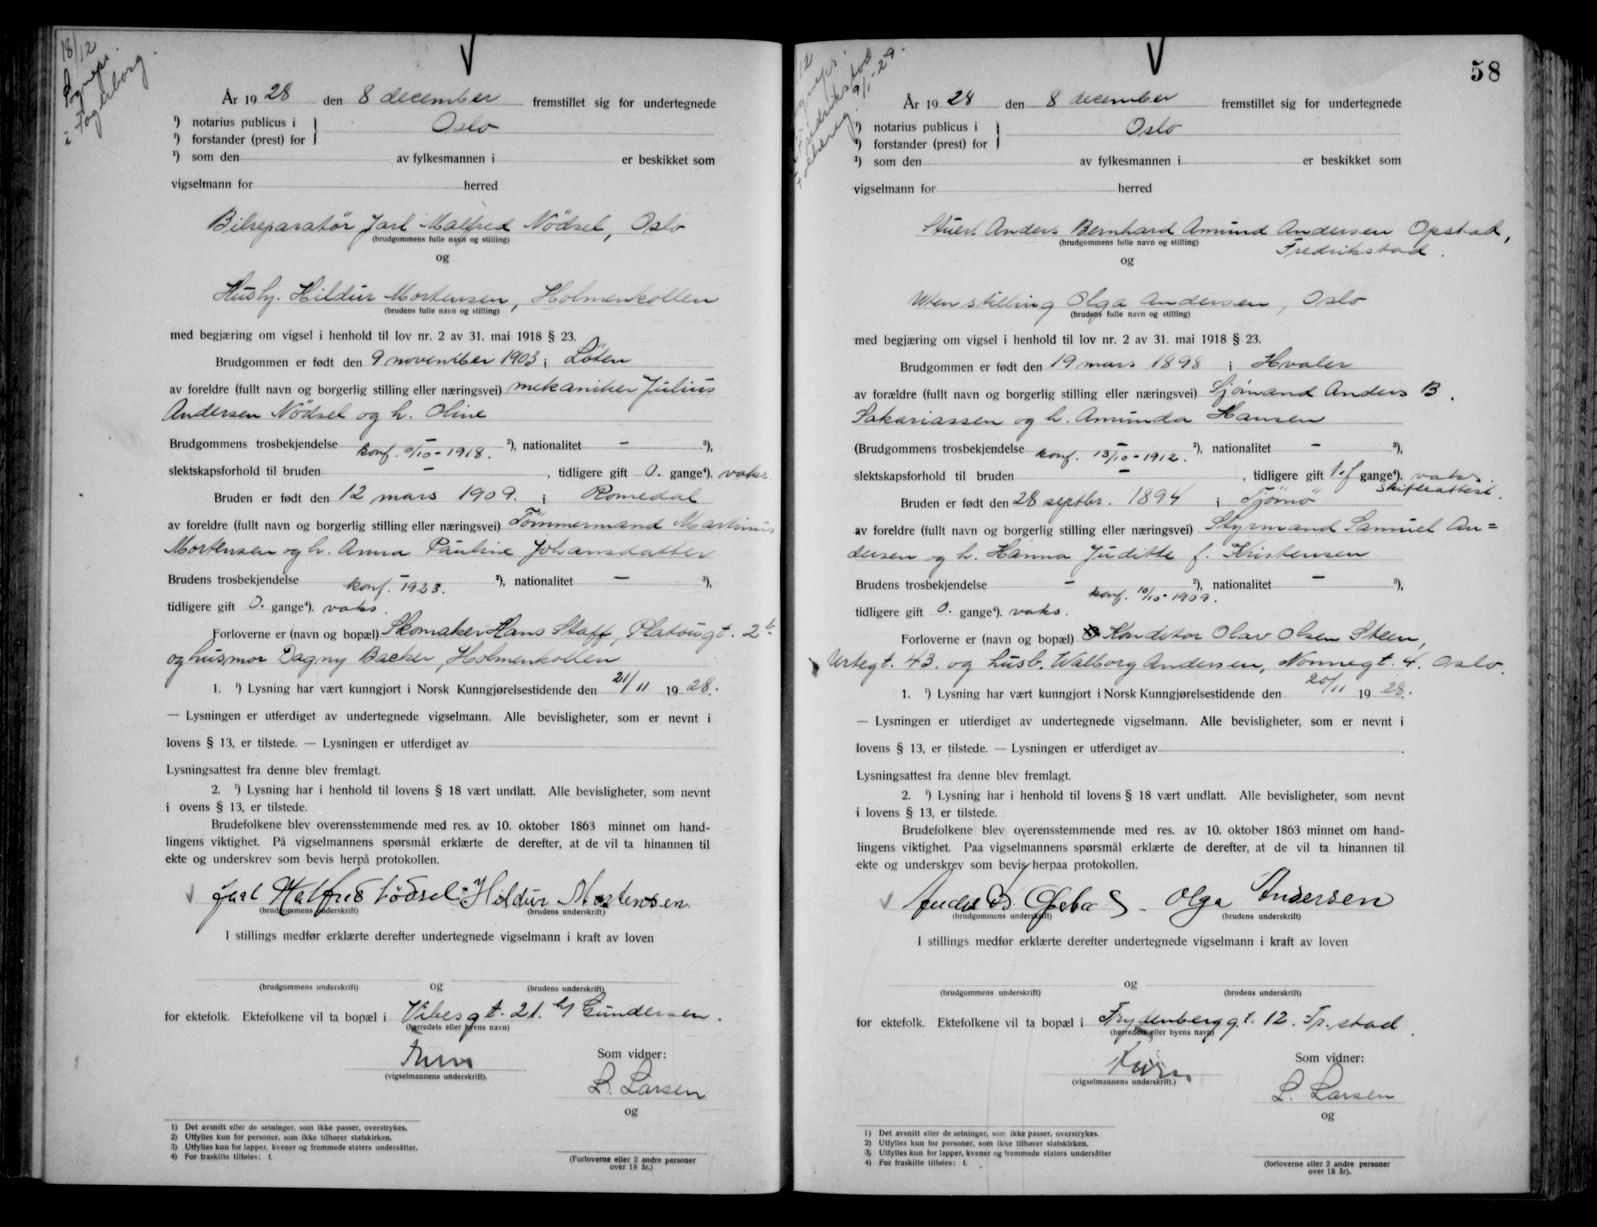 18/12
Sogneps.
i Fagerborg.
År 1928 den 8 december fremstillet sig for undertegnede
¹) notarius publicus i } Oslo
¹) forstander (prest) for }
¹) som den av fylkesmannen i er beskikket som
vigselmann for herred
Bilreparatør Jarl Malfred Nödsel, Oslo
(brudgommens fulle navn og stilling)
og
Hush. Hildur Mortensen, Holmenkollen
(brudens fulle navn og stilling)
med begjæring om vigsel i henhold til lov nr. 2 av 31. mai 1918 § 23.
Brudgommen er født den 9 november 1903 i Löten
av foreldre (fullt navn og borgerlig stilling eller næringsvei) mekaniker Julius
Andersen Nödsel og h. Oline
Brudgommens trosbekjendelse konf. /10-1918. ²), nationalitet – ³),
slektskapsforhold til bruden – , tidligere gift 0. gange⁴). vaks.
Bruden er født den 12 mars 1909. i Romedal
av foreldre (fullt navn og borgerlig stilling eller næringsvei) Tömmermand Martinus
Mortensen og h. Anna Pauline Johansdatter
Brudens trosbekjendelse konf. 1923. ²), nationalitet – ³),
tidligere gift 0. gange⁴). vaks.
Forloverne er (navn og bopæl) Skomaker Hans Staff, Platougt. 2b
og husmor Dagny Backer, Holmenkollen
1. ¹) Lysning har vært kunngjort i Norsk Kunngjørelsestidende den 21/11 1928.
— Lysningen er utferdiget av undertegnede vigselmann. Alle bevisligheter, som er nevnt i
lovens § 13, er tilstede. — Lysningen er utferdiget av
Lysningsattest fra denne blev fremlagt.
2. ¹) Lysning har i henhold til lovens § 18 vært undlatt. Alle bevisligheter, som nevnt
i ovens § 13, er tilstede.
Brudefolkene blev overensstemmende med res. av 10. oktober 1863 minnet om hand-
lingens viktighet. På vigselmannens spørsmål erklærte de derefter, at de vil ta hinannen til
ekte og underskrev som bevis herpå protokollen.
Jarl Malfred Nödsel - Hildur Mortensen.
(brudgommens underskrift) (brudens underskrift)
I stillings medfør erklærte derefter undertegnede vigselmann i kraft av loven
og
(brudgommens underskrift) (brudens underskrift)
for ektefolk. Ektefolkene vil ta bopæl i Vibesgt. 21. b/ Gundersen.
(herredets eller byens navn)
Som vidner:
(vigselmannens underskrift).
L. Larsen
og
1) Det avsnitt eller de setninger, som ikke passer, overstrykes.
2) Utfylles kun for personer, som ikke tilhører statskirken.
3) Utfylles kun for lapper, kvener og fremmede staters undersåtter.
4) For fraskilte tilføies: f.
(Forloverne eller 2 andre personer
over 18 år.)
58
Fredrikstad
9/1-29.
År 1928 den 8 december fremstillet sig for undertegnede
¹) notarius publicus i } Oslo
¹) forstander (prest) for }
¹) som den av fylkesmannen i er beskikket som
vigselmann for herred
Stuert Anders Bernhard Amund Andersen Opstad,
Fredrikstad.
(brudgommens fulle navn og stilling)
og
Uten stilling Olga Andersen, Oslo
(brudens fulle navn og stilling)
med begjæring om vigsel i henhold til lov nr. 2 av 31. mai 1918 § 23.
Brudgommen er født den 19 mars 1898 i Hvaler
av forældre (fullt navn og borgerlig stilling eller næringsvei) Sjømand Anders B.
Sakariassen og h. Amunda Hansen
(Brudgommens trosbekjendelse konf. 13/10-1912. ²), nationalitet – ³),
slektskapsforhold til bruden – , tidligere gift 1.f gange⁴). vaks.
skifteattest.
Bruden er født den 28 septbr. 1894 i Tjömö
av foreldre (fullt navn og borgerlig stilling eller næringsvei) Styrmand Samuel An=
dersen og h. Hanna Juditte f. Kristensen
Brudens trosbekjendelse – ²), nationalitet – ³),
konf. 10/10-1909.
tidligere gift 0. gange⁴). vaks.
Forloverne er (navn og bopæl) Konditor Olav Olsen Steen,
Urtegt. 43. og husb. Walborg Andersen, Nonnegt. 4. Oslo.
1. ¹) Lysning har vært kunngjort i Norsk Kunngjørelsestidende den 20/11 1928.
— Lysningen er utferdiget av undertegnede vigselmann. Alle bevisligheter, som er nevnt i
lovens § 13, er tilstede. — Lysningen er utferdiget av .
Lysningsattest fra denne blev fremlagt.
2. ¹) Lysning har i henhold til lovens § 18 vært undlatt. Alle bevisligheter, som nevnt
i lovens § 13, er tilstede.
Brudefolkene blev overensstemmende med res. av 10. oktober 1863 minnet om hand-
lingens viktighet. Paa vigselmannens spørsmål erklærte de derefter, at de vil ta hinannen til
ekte og underskrev som bevis herpaa protokollen.
Olga Andersen
(brudgommens underskrift) (brudens underskrift)
I stillings medfør erklærte derefter undertegnede vigselmann i kraft av loven
og
(brudgommens underskrift) (brudens underskrift)
for ektefolk. Ektefolkene vil ta bopæl i Frydenberggt. 12. Fr.stad.
(herredets eller byens navn)
Som vidner:
(vigselmannens underskrift.)
L. Larsen
og
1) Det avsnitt eller de setninger, som ikke passer, overstrykes.
2) Utfylles kun for personer, som ikke tilhører statskirken.
3) Utfylles kun for lapper, kvener og fremmede staters undersåtter
4) For fraskilte tilføies: f.
(forloverne eller 2 andre personer
over 18 år).